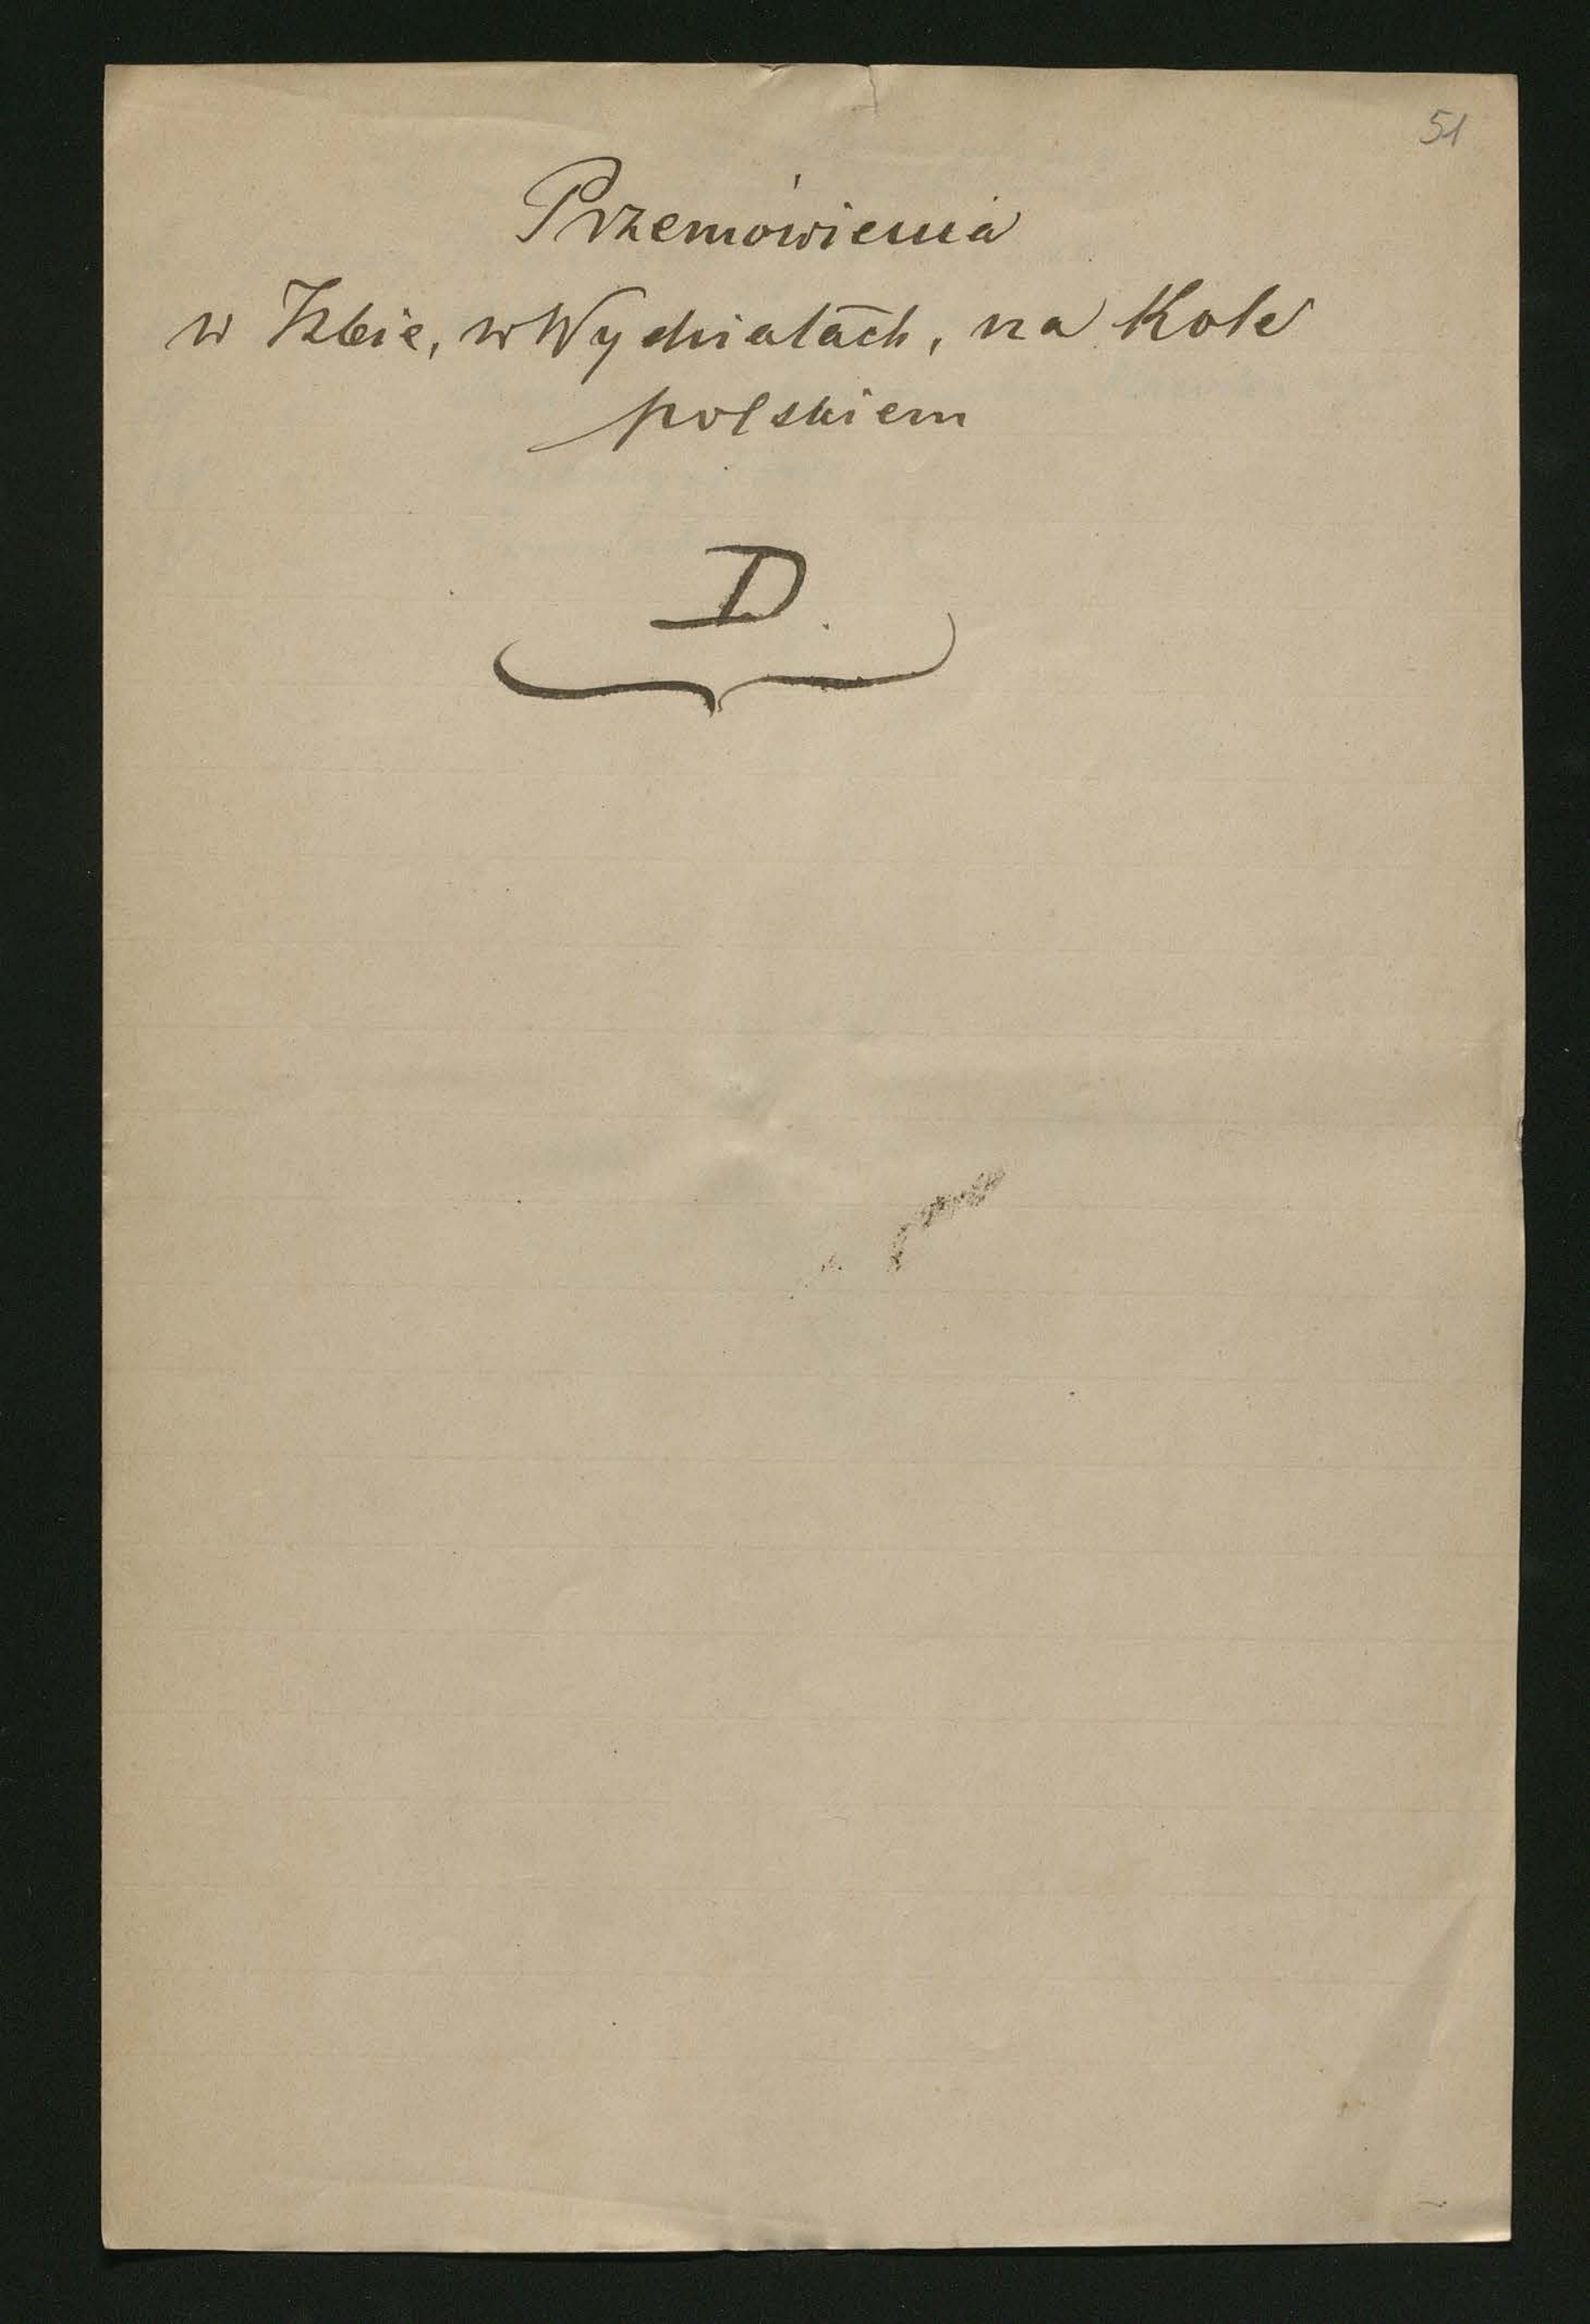 51
Przemówienia
w Izbie, w Wydziałach, na Kole
polskiem
D.